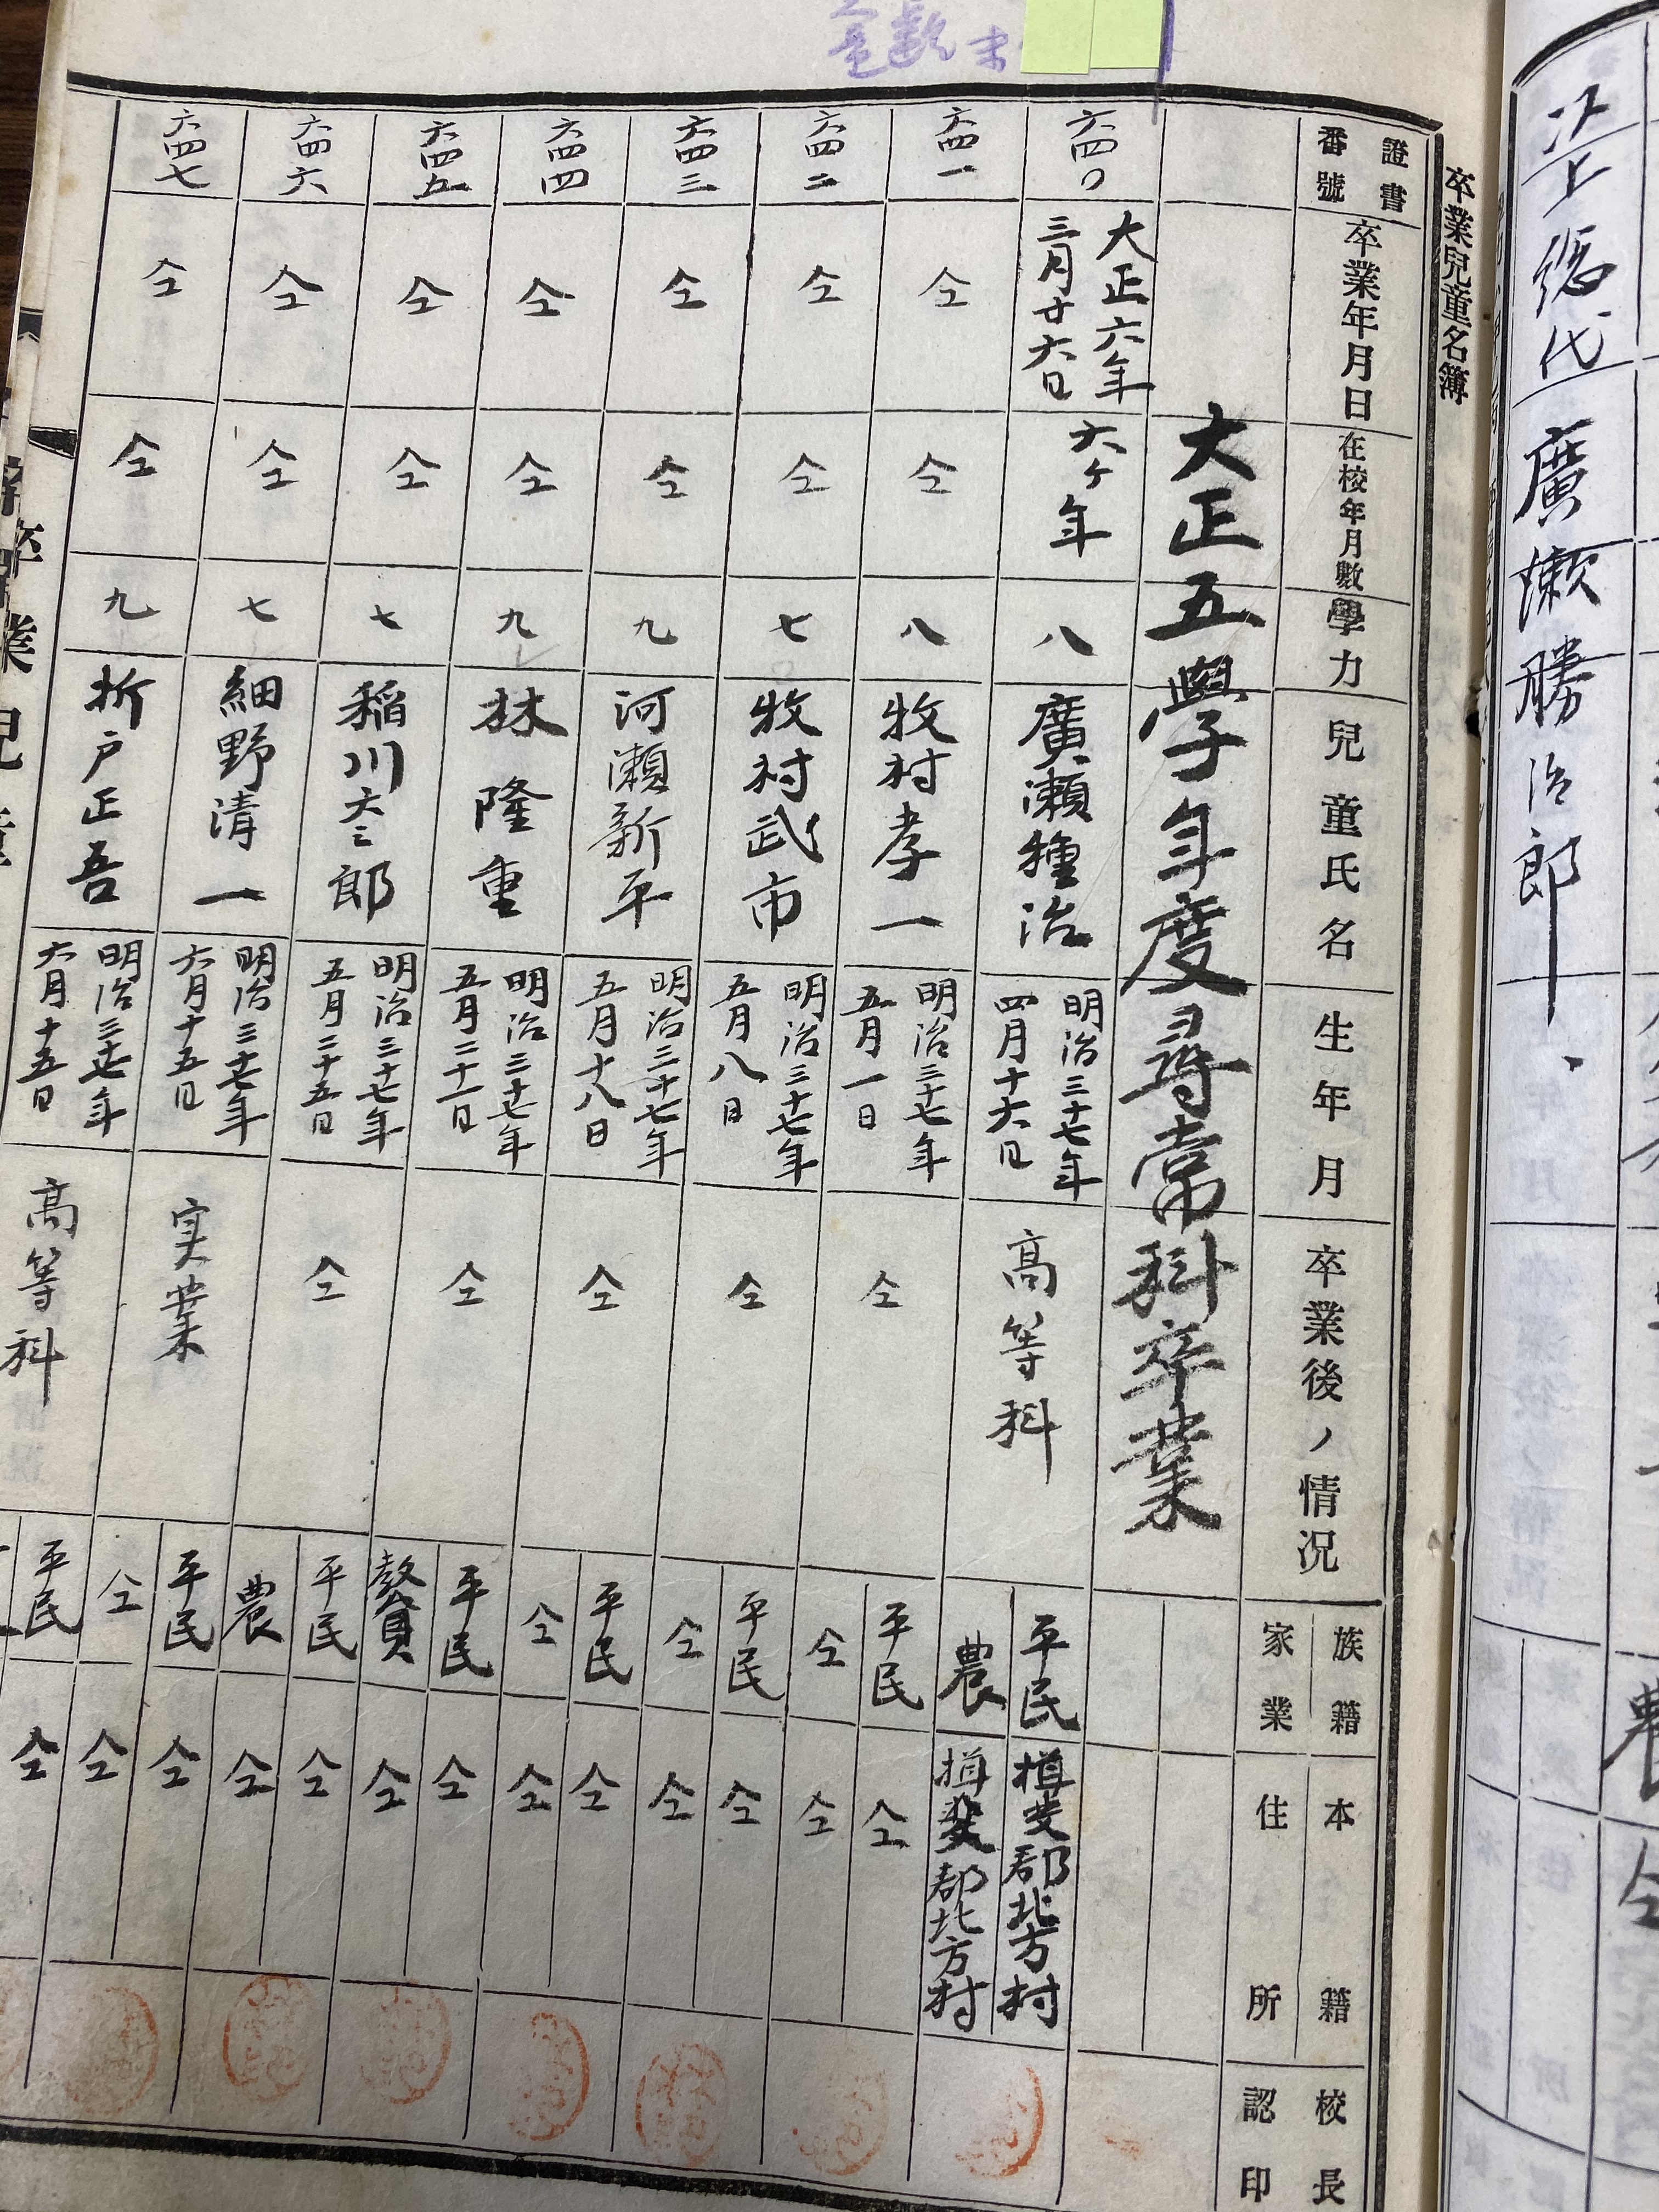 上総代 廣瀬勝治郎
卒業兒童名簿
證書番號
卒業年月日
在校年月數
學力
兒童氏名
生年月
卒業後ノ情况
族籍
家業
本籍
住所
校長認印
大正五學年度尋常科卒業
六四〇
大正六年
三月廿六日
六ヶ年
八
廣瀬種治
明治三十七年
四月十六日
高等科
平民
農
揖斐郡北方村
揖斐郡北方村
六四一
仝
仝
八
牧村孝一
明治三十七年
五月一日
仝
平民
仝
仝
仝
六四二
仝
仝
七
牧村武市
明治三十七年
五月八日
仝
平民
仝
仝
仝
六四三
仝
仝
九
河瀬新平
明治三十七年
五月十八日
仝
平民
仝
仝
仝
六四四
仝
仝
九
林隆重
明治三十七年
五月二十一日
仝
平民
贅
仝
仝
六四五
仝
仝
七
稲川六三郎
明治三十七年
五月二十五日
仝
平民
農
仝
仝
六四六
仝
仝
七
細野清一
明治三十七年
六月十五日
実業
平民
仝
仝
仝
六四七
仝
仝
九
折戸正吾
明治三十七年
六月十五日
高等科
平民
仝
卒業兒童